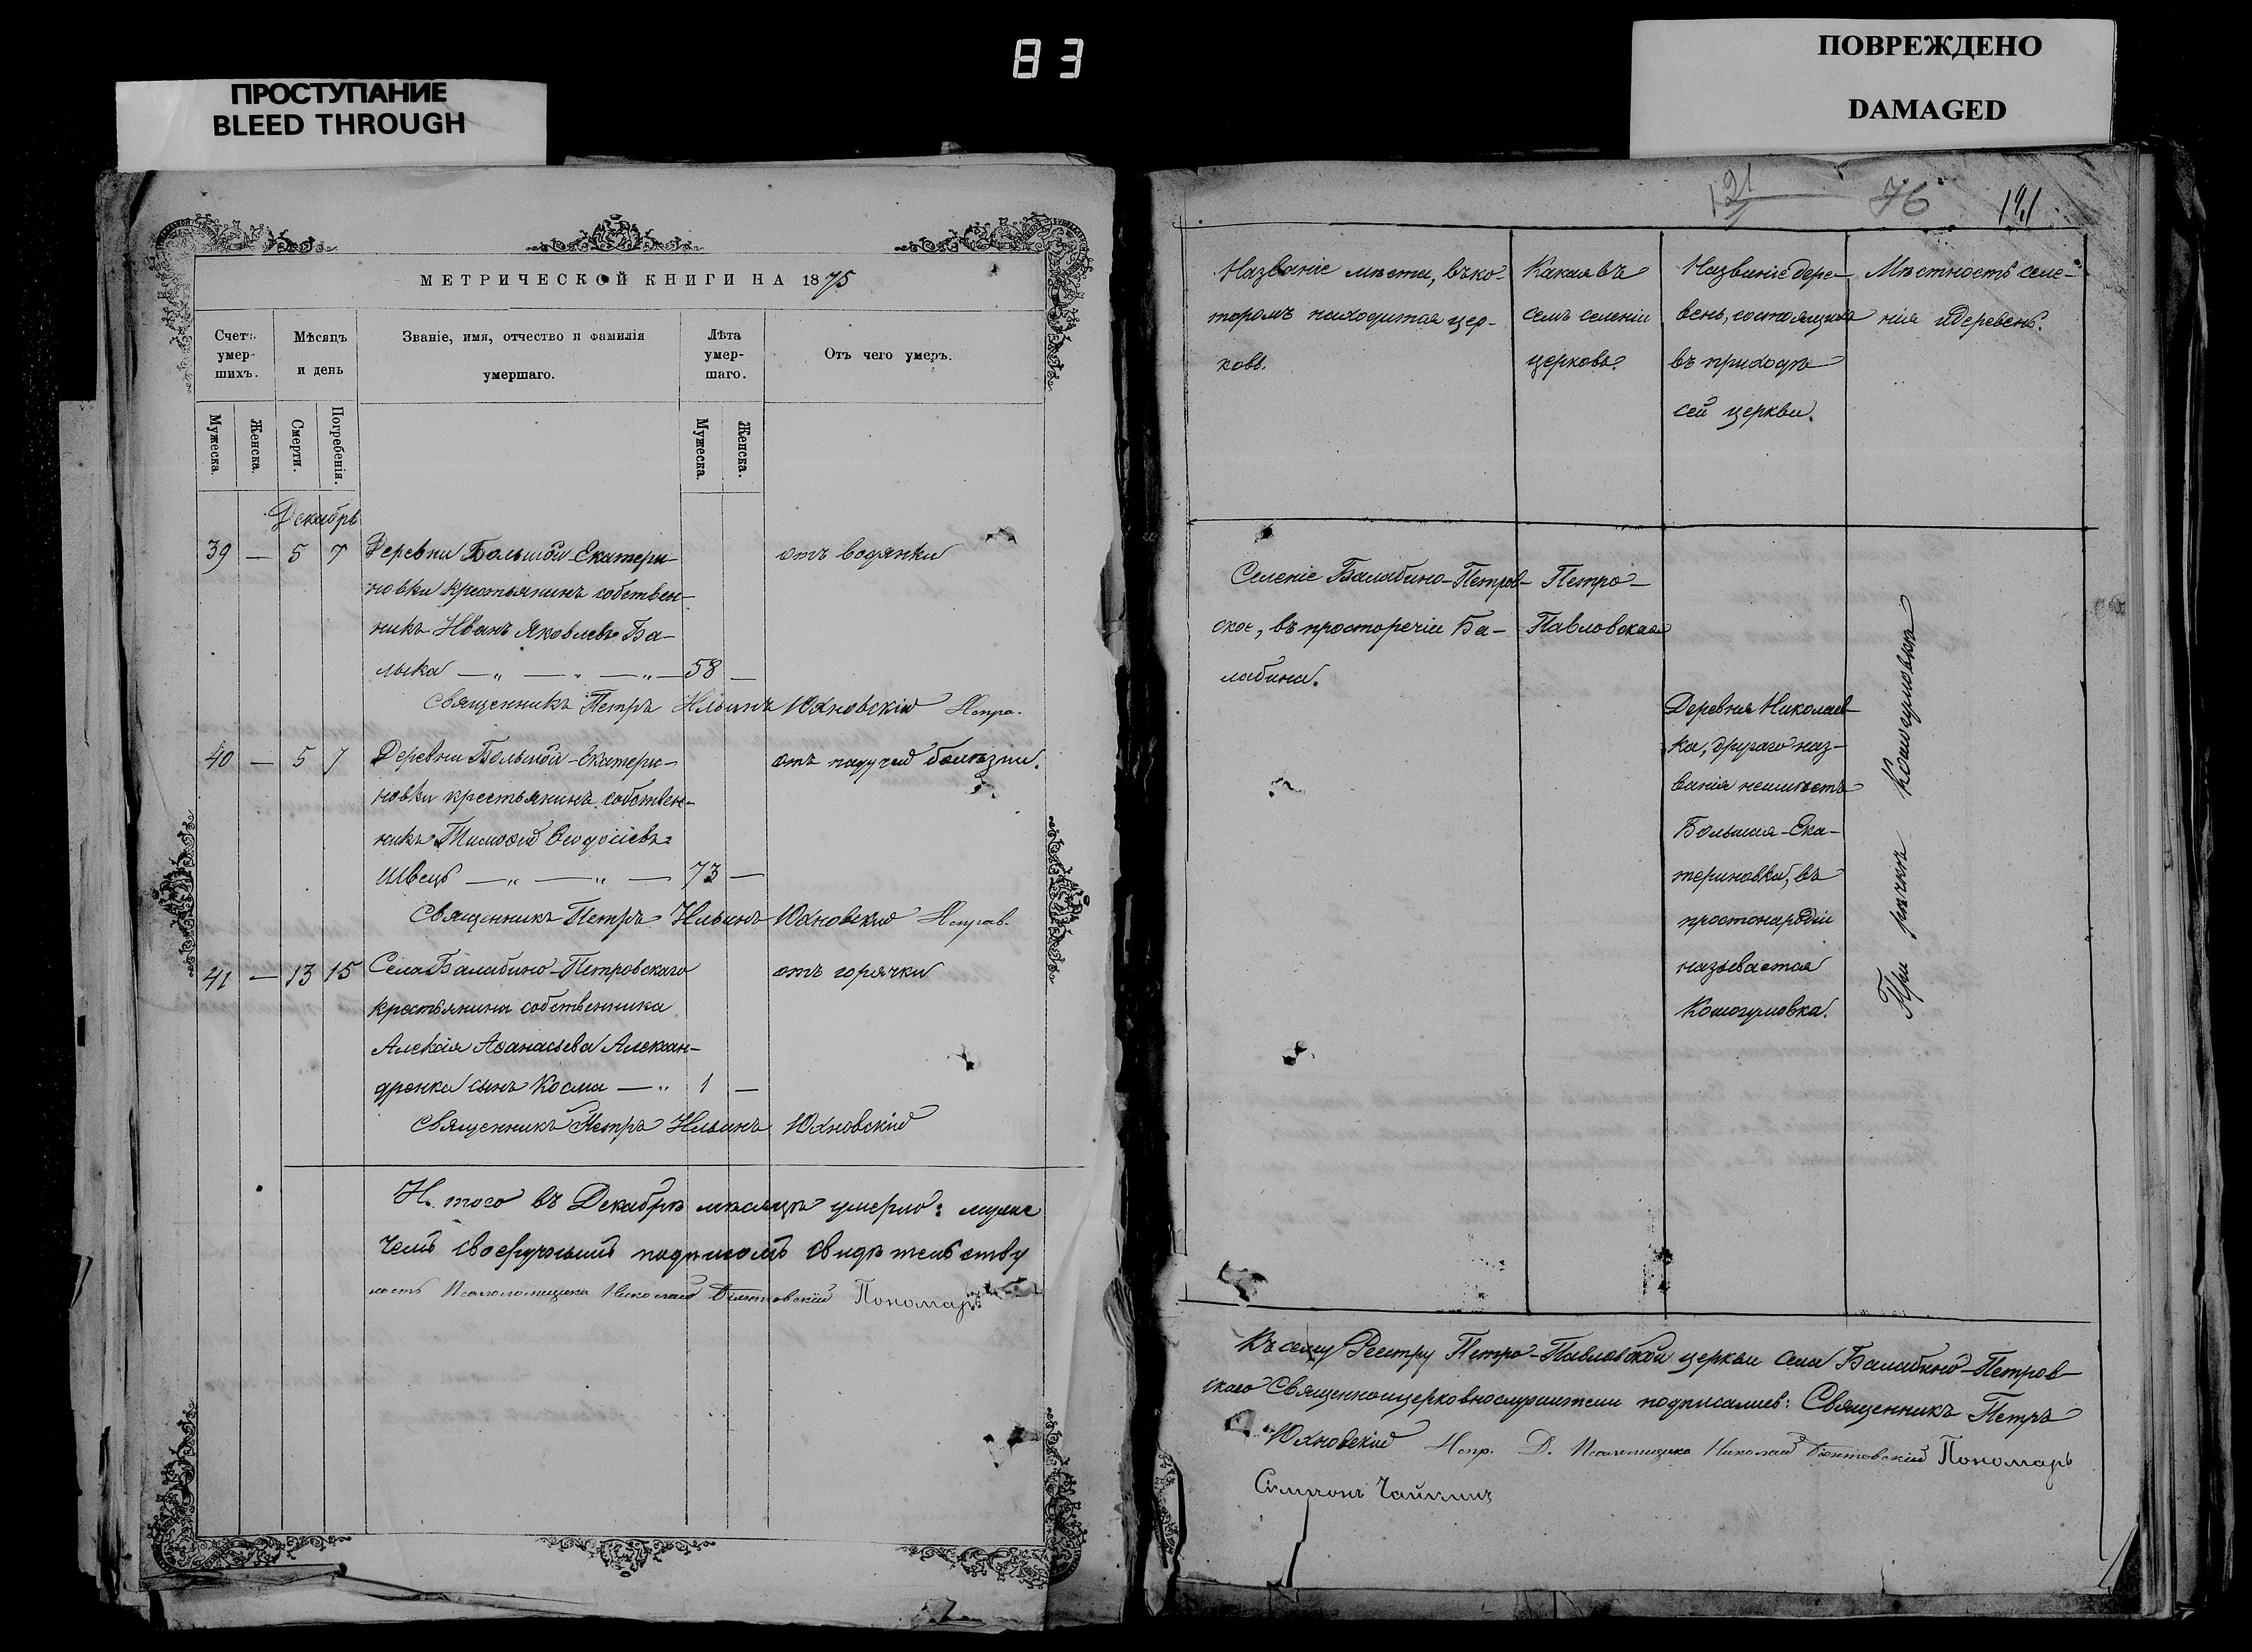 83
ПРОСТУПАНИЕ
BLEED THROUGH
ПОВРЕЖДЕНО
DAMAGED
МЕТРИЧЕСКОЙ КНИГИ НА 1875
Счетъ умер-шихъ.
Мѣсяцъ и день
Званіе, имя, отчество и фамилія умершаго.
Лѣта умер-шаго.
Отъ чего умеръ.
Мужеска.
Женска.
Смерти.
Погребенія.
Мужеска.
Женска.
Декабрь
39 — 5 7 Деревни Большой-Екатери- отъ водянки
новки крестьянинъ собствен-
никъ Иванъ Яковлевъ Ба-
лыка — „ — „ — „ — 58 —
Священникъ Петръ Ильинъ Юхновскій
40 — 5 7 Деревни Большой-Екатери- отъ падучей болѣзни.
новки крестьянинъ собствен-
никъ Тимоѳей Ѳеодосіевъ
Швецъ — „ — „ — 73 —
Священникъ Петръ Ильинъ Юхновскій
41 — 13 15 Села Балабино-Петровскаго отъ горячки
крестьянина собственника
Алексія Аѳанасьева Алексан-
дренка сынъ Косма — „ 1 —
Священникъ Петръ Ильинъ Юхновскій
И того въ Декабрѣ мѣсяцѣ умерло: муже
чемъ своеручнымъ подписомъ свидѣтельству
Николай Пономарь
121 76 141
Названіе мѣста, въ ко-
торомъ находится цер-
ковь.
Какая въ
семъ селеніи
церковь?
Названіе дере-
вень, состоящихъ
въ приходѣ
сей церкви.
Мѣстность селе-
нія и деревень.
Селеніе Балабино-Петров-
ское, въ просторечіи Ба-
лабина.
Петро-
Павловская
Деревня Николаев-
ка, другаго наз-
ванія неимѣетъ
Большая-Ека-
териновка, въ
простонародіи
называется
Кошогумовка.
При рѣчкѣ Кошогумовкѣ
Къ сему Реестру Петро-Павловской церкви села Балабино-Петров-
скаго Священноцерковнослужители подписались: Священникъ Петръ
Юхновскій Николай Пономарь
Симеонъ